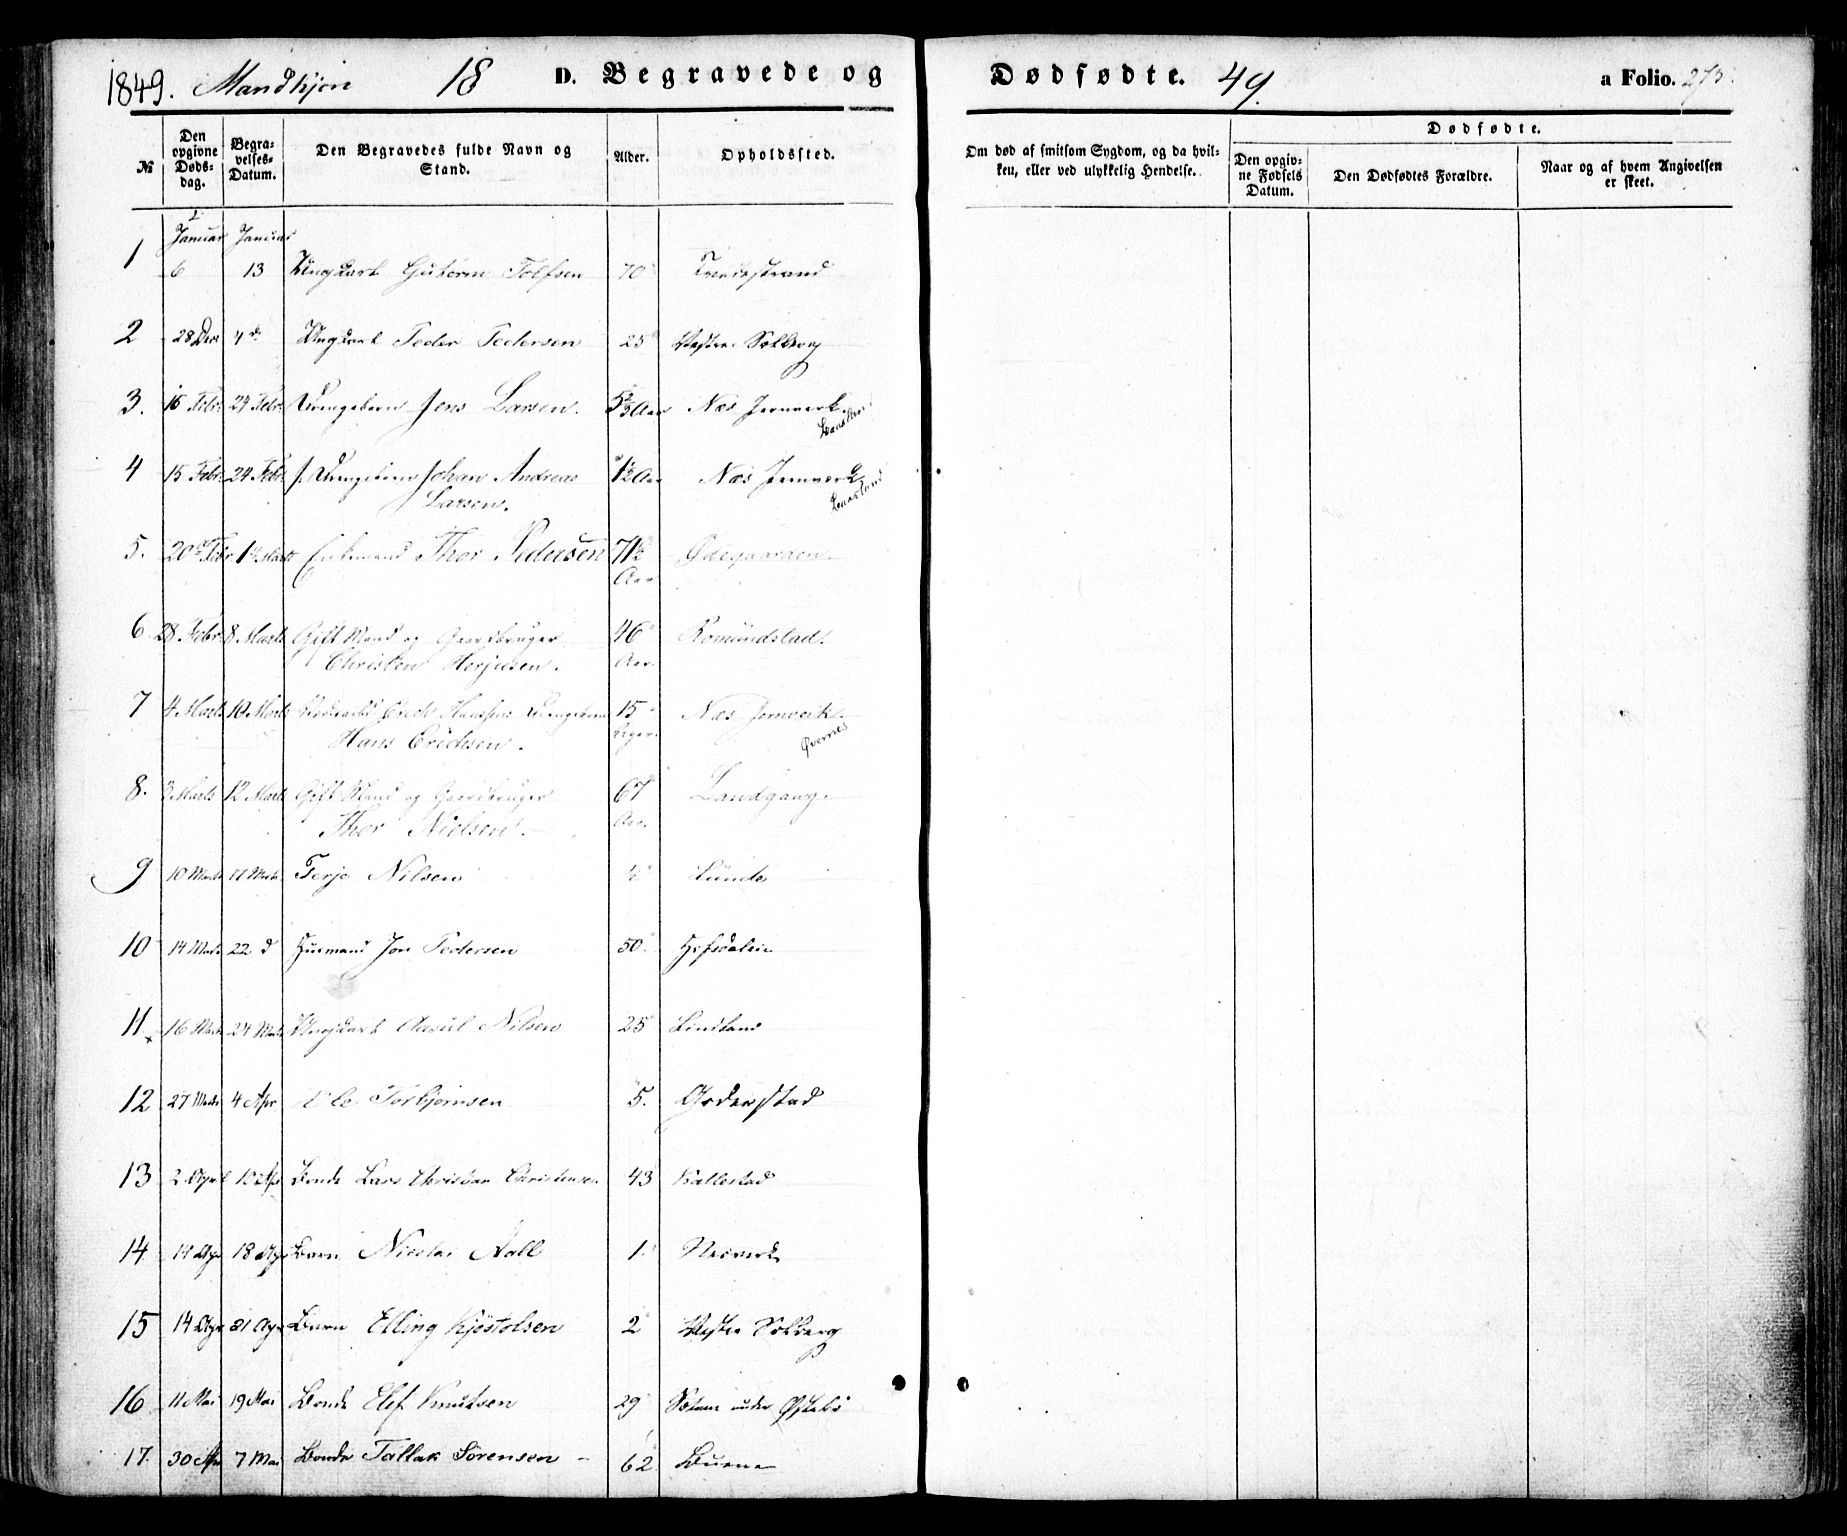 1849. Mandkjøn 18 D. Begravede og Dødfødte. 49. a Folio. 273
№
Den opgivne Døds-dag.
Begra-velses-Datum.
Den Begravedes fulde Navn og Stand.
Alder.
Opholdssted.
Om død af smitsom Sygdom, og da hvil-ken, eller ved ulykkelig Hendelse.
Dødfødte.
Den opgiv-ne Fødsels Datum.
Den Dødfødtes Forældre.
Naar og af hvem Angivelsen er skeet.
Januar Januar
1 6 13 Ungkarl Guttorm Tolfsen 70 Tvedestrand
2 28 Dec 4 d Ungkarl Peder Pedersen 25 Vestre Solberg
3. 16 Febr. 24 Febr. Drengebarn Jens Larsen. Aar Næs Jernværk.
4 15 Febr. 24 Febr. Drengebarn Johan Andreas 1½ Aar Næs Jernværk
Larsen.
5. 20 Febr. 1 Marts Enkemand Thor Pedersen 71½ Ødegaarden.
Aar
6 28 Febr. 8 Marts Gift Mand og Gaardbruger 46 Romundstad.
Christen Herjusen. Aar.
7 4 Marts 10 Marts Erich Hansens Drengebarn 15 Næs Jernverk.
Hans Erichsen. Uger. Øvernes
8. 3 Marts 12 Marts Gift Mand og Gaardbruger 67 Landgang.
Thor Nielsen. Aar.
9 10 Marts 17 Marts Terje Nilsen ½ Lunde
10 14 Marts 22 d Husmand Jon Pedersen 50. Hofsdalen
11 16 Marts 24 Marts Ungkarl Aasul Nilsen 25 Lindland
12 27 Marts 4 Apr Ole Torbjørnsen 5. Goderstad
13 2 April 10 Ap Bonde Lars Christian Christensen 43 Kallestad
14 14 Apr 18 Apr Barn Nicolai Aall 1. Nesverk
15 14 Apr 21 Apr Barn Elling Kjøstolsen 2 Vestre Solberg
16 11 Mai 19 Mai Bonde Elef Knutsen 29 under Østebø
17. 30 Ap 7 Mai Bonde Tallak Sørensen - 62